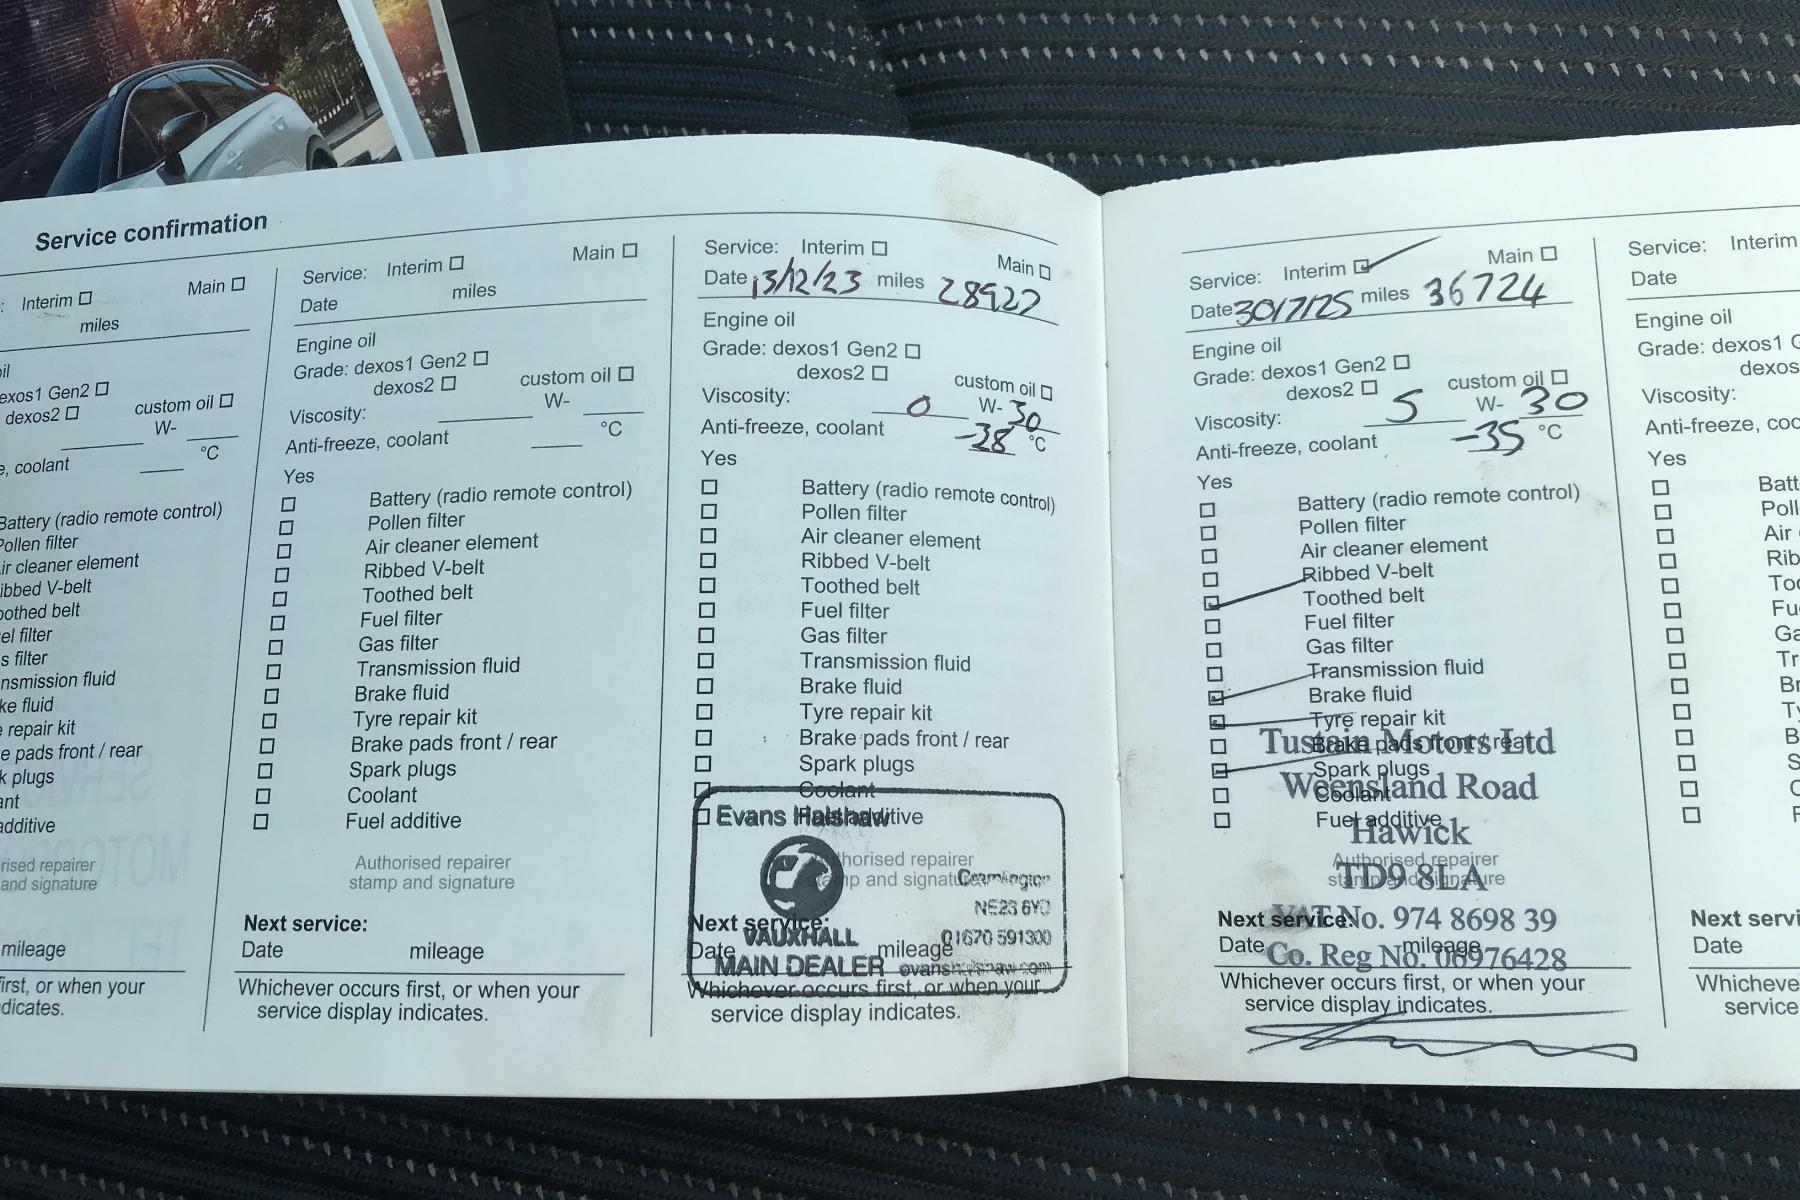 Service confirmation
: Interim Main
miles
oil
exos1 Gen2
dexos2 custom oil
W-
°C
e, coolant
Battery (radio remote control)
Pollen filter
ir cleaner element
ibbed V-belt
oothed belt
el filter
s filter
nsmission fluid
ke fluid
e repair kit
e pads front / rear
k plugs
ant
additive
rised repairer
and signature
mileage
first, or when your
dicates.
Service: Interim Main
Date miles
Engine oil
Grade: dexos1 Gen2
dexos2 custom oil
Viscosity: W-
Anti-freeze, coolant °C
Yes
Battery (radio remote control)
Pollen filter
Air cleaner element
Ribbed V-belt
Toothed belt
Fuel filter
Gas filter
Transmission fluid
Brake fluid
Tyre repair kit
Brake pads front / rear
Spark plugs
Coolant
Fuel additive
Authorised repairer
stamp and signature
Next service:
Date mileage
Whichever occurs first, or when your
service display indicates.
Service: Interim Main
Date 13/12/23 miles 28927
Engine oil
Grade: dexos1 Gen2
dexos2 custom oil
Viscosity: 0 W- 30
Anti-freeze, coolant -38 °C
Yes
Battery (radio remote control)
Pollen filter
Air cleaner element
Ribbed V-belt
Toothed belt
Fuel filter
Gas filter
Transmission fluid
Brake fluid
Tyre repair kit
Brake pads front / rear
Spark plugs
Coolant
Fuel additive
Evans Halshaw
Authorised repairer
stamp and signature
Cramlington
NE23 6YD
01670 591300
Next service:
VAUXHALL
Date mileage
MAIN DEALER evanshalshaw.com
Whichever occurs first, or when your
service display indicates.
Service: Interim Main
Date 30/7/25 miles 36724
Engine oil
Grade: dexos1 Gen2
dexos2 custom oil
Viscosity: 5 W- 30
Anti-freeze, coolant -35 °C
Yes
Battery (radio remote control)
Pollen filter
Air cleaner element
Ribbed V-belt
Toothed belt
Fuel filter
Gas filter
Transmission fluid
Brake fluid
Tyre repair kit
Brake pads front / rear
Spark plugs
Coolant
Fuel additive
Tustain Motors Ltd
Weensland Road
Hawick
TD9 8LA
VAT No. 974 8698 39
Co. Reg No. 06976428
Authorised repairer
stamp and signature
Next service:
Date mileage
Whichever occurs first, or when your
service display indicates.
Service: Interim
Date
Engine oil
Grade: dexos1 G
dexos
Viscosity:
Anti-freeze, coo
Yes
Batt
Poll
Air
Rib
Too
Fu
Ga
Tr
Br
Ty
B
S
C
F
Next servi
Date
Whicheve
service